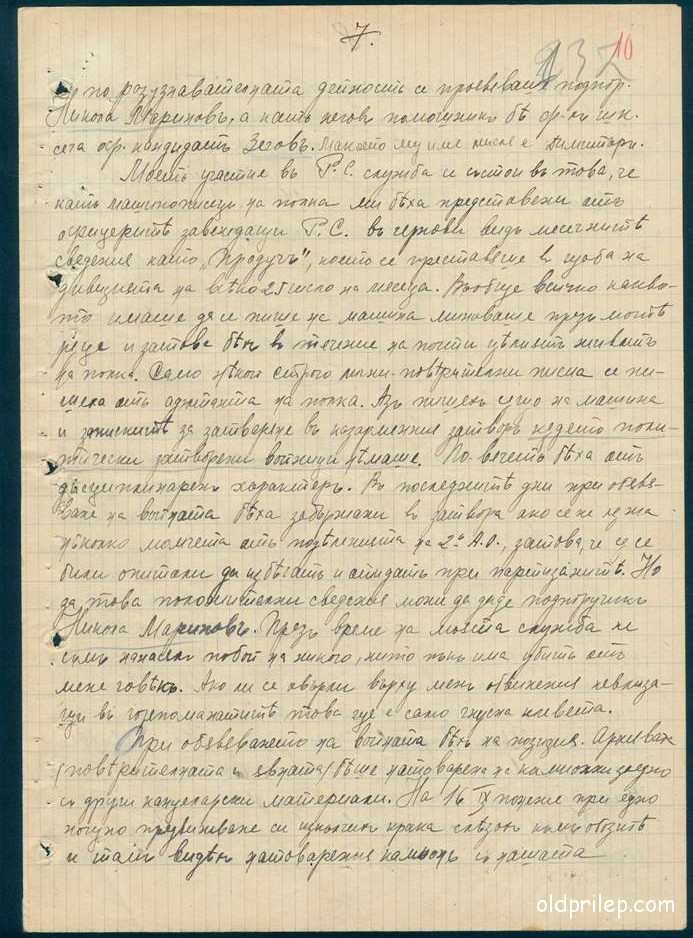 7.
137 10
по разузнавателната дейность се проявяваше подпор.
Никола Мариновъ, а като неговъ помошникъ бѣ ф-къ шк.
сега оф. кандидатъ Зеговъ. Малкото му име мисля е Димитъръ.
Моето участие въ Р.С. служба се състои въ това, че
като машинописецъ на полка ми бѣха представени отъ
офицеритѣ завеждащи Р.С. въ черновъ видъ месечнитѣ
сведения като „Продучъ", които се преставяше в щаба на
дивизията на всѣко 25 число на месеца. Въобще всичко какво-
то имаше да се пише на машина минаваше презъ моитѣ
ръце и затова бѣхъ в течение на почти цѣлиятъ животъ
на полка. Само нѣкои строго лични-повѣрителни писма се пи-
шеха отъ адютанта на полка. Азъ пишехъ също на машина
и запискитѣ за затваряне въ казармения затворъ където поли-
тически затворени войници нѣмаше. По вечето бѣха отъ
дисциплинаренъ характеръ. Въ последнитѣ дни при обявя-
ване на войната бѣха задържани въ затвора ако се не лъжа
нѣколко момчета отъ подѣленията на 2. А.О., затова, че су се
били опитали да избѣгатъ и отидатъ при партизанитѣ. Но
за това положителни сведения може да даде подпоручикъ
Никола Мариновъ. Презъ време на моята служба не
съмъ нанасялъ побой на никого, нито пъкъ има убитъ отъ
мене човѣкъ. Ако ли се хвърли върху менъ обвинения невлиза-
щи въ горепоманатитѣ това ще е само гнусна клевета.
При обявяването на войната бѣхъ на позиция. Архивата
(повѣрителната и явната) бѣше натоварена на камиони заедно
съ други канцеларски материали. На 16 IX понеже при едно
нощно придвижване си изкълчихъ крака слѣзохъ къмъ обозитѣ
и тамъ видѣхъ натоварения камионъ съ нашата
oldprilep.com